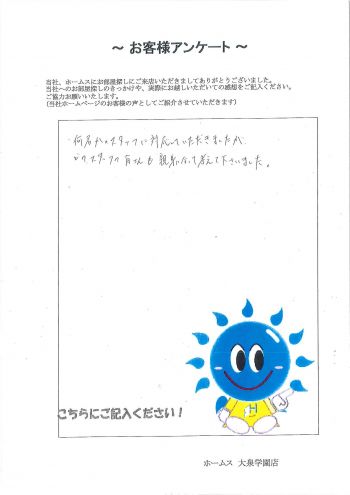 ～ お客様アンケート ～
当社、ホームスにお部屋探しにご来店いただきましてありがとうございました。
当社へのお部屋探しのきっかけや、実際にお越しいただいての感想をご記入ください。
ご協力お願いいたします。
(当社ホームページのお客様の声としてご紹介させていただきます)
何名かのスタッフに対応していただきましたが
どのスタッフの方々も親身になって考えて下さいました。
H
こちらにご記入ください！
ホームス 大泉学園店